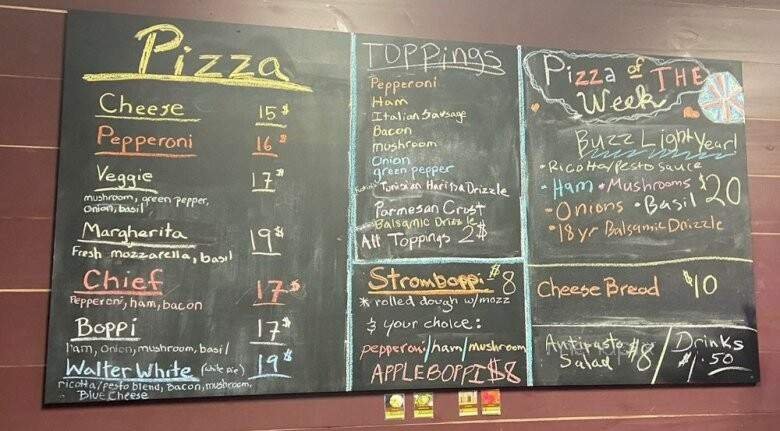 Pizza
Cheese 15$
Pepperoni 16$
Veggie 17$
mushroom, green pepper,
onion, basil
Margherita 19$
Fresh mozzarella, basil
Chief 17$
Pepperoni, ham, bacon
Boppi 17$
Ham, onion, mushroom, basil
Walter White (white pie) 19$
ricotta/pesto blend, Bacon, mushroom,
Blue Cheese
TOPPINGS
Pepperoni
Ham
Italian Sausage
Bacon
mushroom
Onion
green pepper
Tunisian Harissa Drizzle
Parmesan Crust
Balsamic Drizzle
All Toppings 2$
Stromboppi $8
* rolled dough w/mozz
& your choice:
pepperoni/ham/mushroom
APPLEBOPPI $8
Pizza of THE
Week
Buzz Lightyear!
• Ricotta/pesto sauce
• Ham • Mushrooms $20
• Onions • Basil
• 18 yr Balsamic Drizzle
Cheese Bread $10
Antipasto Salad $8 / Drinks $1.50